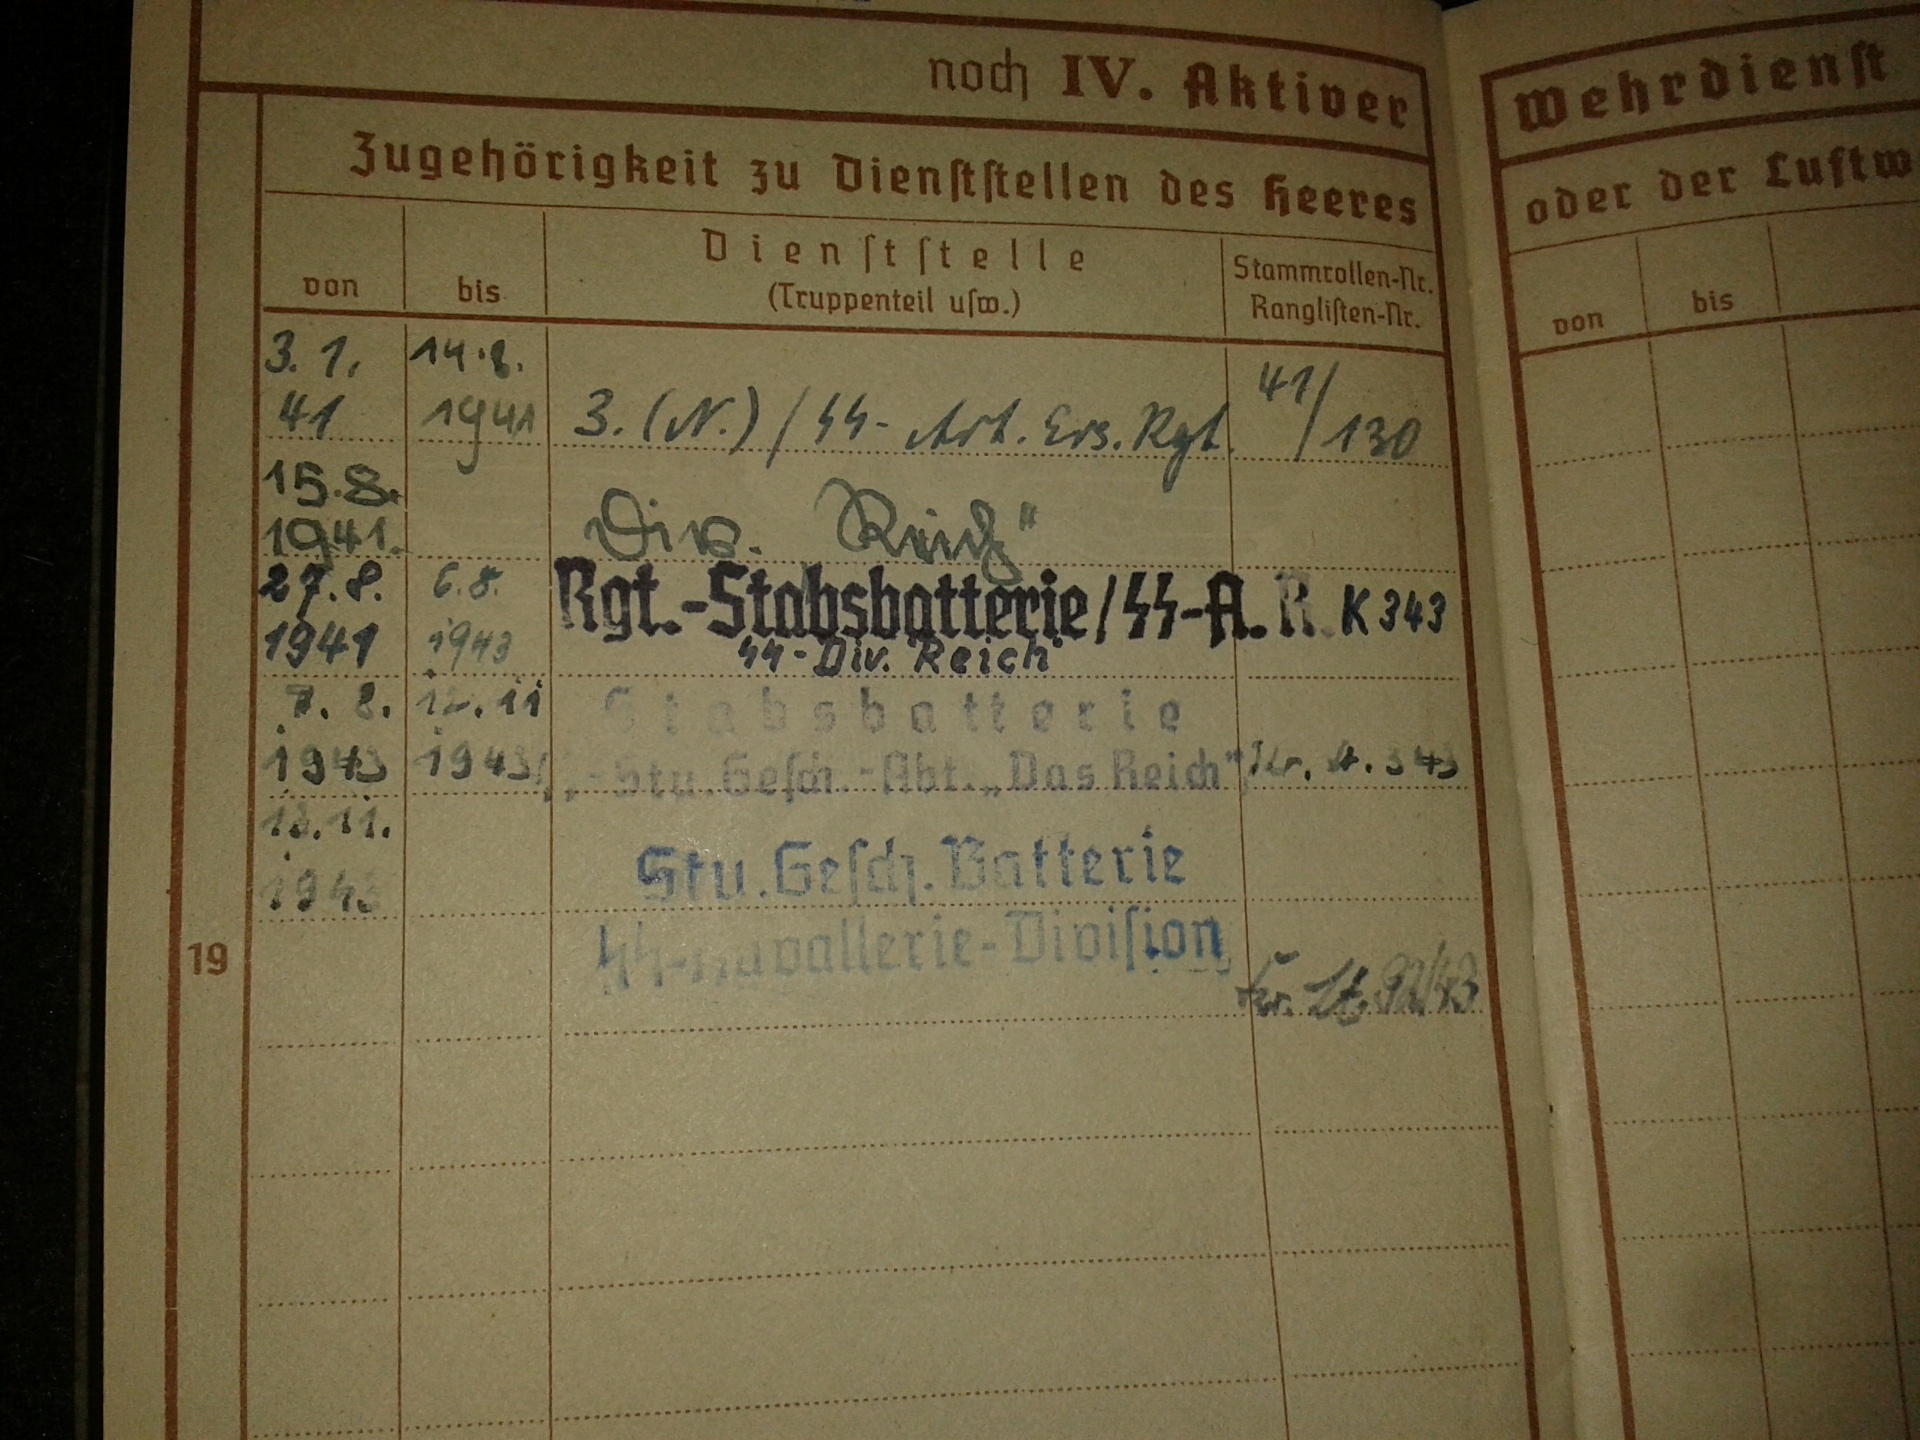 noch IV. Aktiver
Zugehörigkeit zu Dienststellen des Heeres
von bis Dienststelle (Truppenteil usw.) Stammrollen-Nr. Ranglisten-Nr.
3. 1. 14.8.
41 1941 3. (N.) / SS- Art. Ers. Rgt. 41/130
15.8.
1941. Div. Reich"
27.8. 6.8. Rgt.-Stabsbatterie/SS-A.R. K 343
1941 1943 SS-Div. Reich
7. 8. 12.11 Stabsbatterie
1943 1943 -Stu.Gesch.-Abt.„Das Reich" 343
13.11.
1943 Stu.Gesch.Batterie
SS-Kavallerie-Division
92/43
19
Wehrdienst
oder der Luftw
von bis